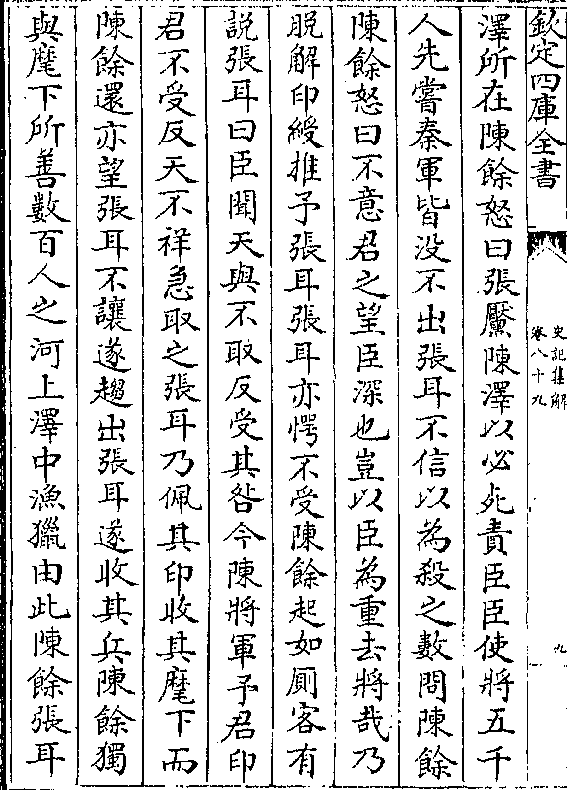 欽定四庫全書
史記集解
卷八十九
九
澤所在陳餘怒曰張黶陳澤以必死責臣臣使將五千
人先嘗秦軍皆没不出張耳不信以為殺之數問陳餘
陳餘怒曰不意君之望臣深也豈以臣為重去將哉乃
脱解印綬推予張耳張耳亦愕不受陳餘起如厠客有
説張耳曰臣聞天與不取反受其咎今陳將軍予君印
君不受反天不祥急取之張耳乃佩其印收其麾下而
陳餘還亦望張耳不讓遂趨出張耳遂收其兵陳餘獨
與麾下所善數百人之河上澤中漁獵由此陳餘張耳